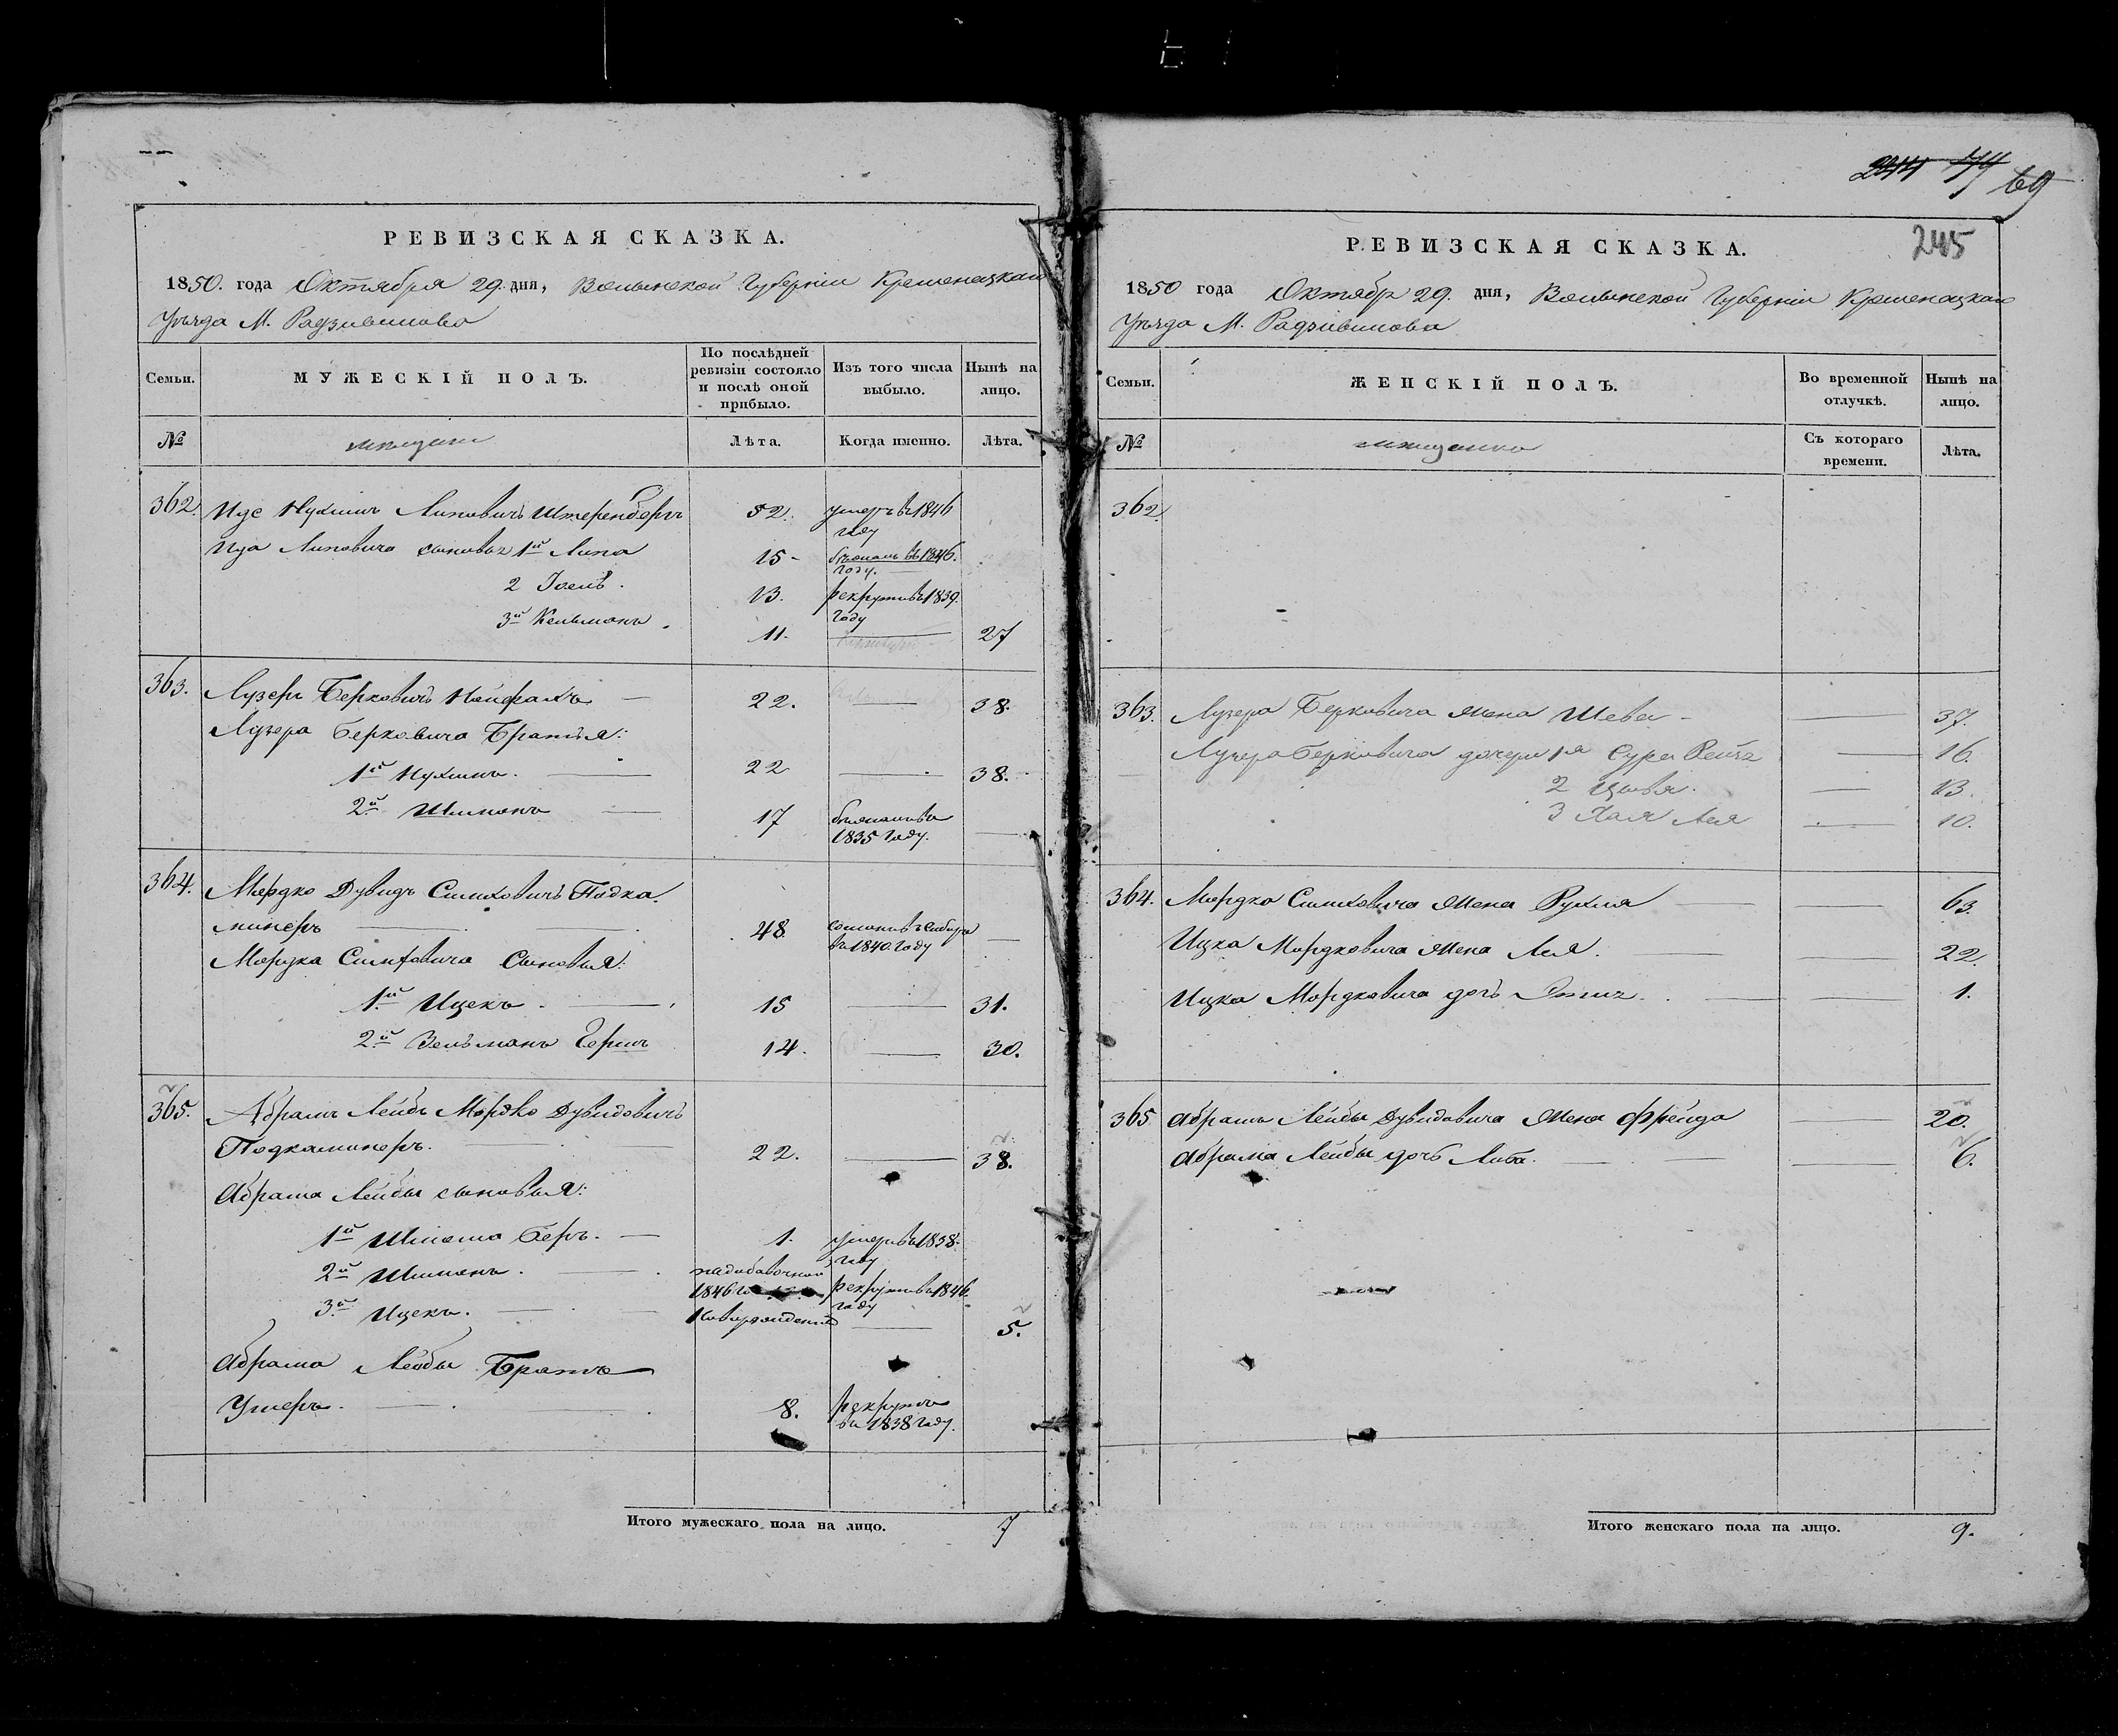 244 74 69
245
РЕВИЗСКАЯ СКАЗКА.
1850. года Октября 29. дня, Волынской Губерніи Кременецкаго
Уѣзда М. Радзивилова
Семьи.
МУЖЕСКІЙ ПОЛЪ.
По послѣдней ревизіи состояло и послѣ оной прибыло.
Изъ того числа выбыло.
Нынѣ на лицо.
№
мѣщане
Лѣта.
Когда именно.
Лѣта.
362. Иде Нухимъ Липовичъ Штеренбергъ 52. умеръ въ 1846 году
Ида Липовича сыновья 1й Липа 15 - бѣжалъ въ 1846. году.
2 Іоель. 13. рекрутъ въ 1839. году
3й Кельманъ. 11. 27
363. Лузеръ Берковичъ Нейфахъ 22. 38.
Лузера Берковича Братья:
1й Нухимъ. 22 38.
2й Шимонъ 17 бѣжалъ въ 1835 году.
364. Мордко Дувидъ Симховичъ Подка-
минеръ 48. сосланъ въ Сибирь въ 1840 году
Мордка Симховича Сыновья:
1й Ицекъ. 15 31.
2й Зельманъ Гершъ 14. 30.
365. Абрамъ Лейбъ Мордко Дувидовичъ
Подкаминеръ. 22. 38.
Абрама Лейбы сыновья:
1й Шлема Беръ. 1. умеръ въ 1838. году
2й Шимонъ. 1846 рекрутъ въ 1846. году
3й Ицекъ. Новорожденный 5.
Абрама Лейбы Братъ
Ушеръ. 8. рекрутъ въ 1838 году.
Итого мужескаго пола на лицо. 7
РЕВИЗСКАЯ СКАЗКА.
1850 года Октябр 29. дня, Волынской Губерніи Кременецкаго
Уѣзда М. Радзивилова
Семьи.
ЖЕНСКІЙ ПОЛЪ.
Во временной отлучкѣ.
Нынѣ на лицо.
№
мѣщанки
Съ котораго времени.
Лѣта.
362.
363. Лузера Берковича жена Шева 37.
Лузера Берковича дочери 1я Сура Рейза 16.
2 Цывя. 13.
3 Хая Лея 10.
364. Мордка Симховича жена Рухля 63.
Ицка Мордковича жена Лея. 22.
Ицка Мордковича дочь 1.
365 Абрамъ Лейбы Дувидовича жена Фрейда 20.
Абрама Лейбы дочь Либа. 6.
Итого женскаго пола на лицо. 9.